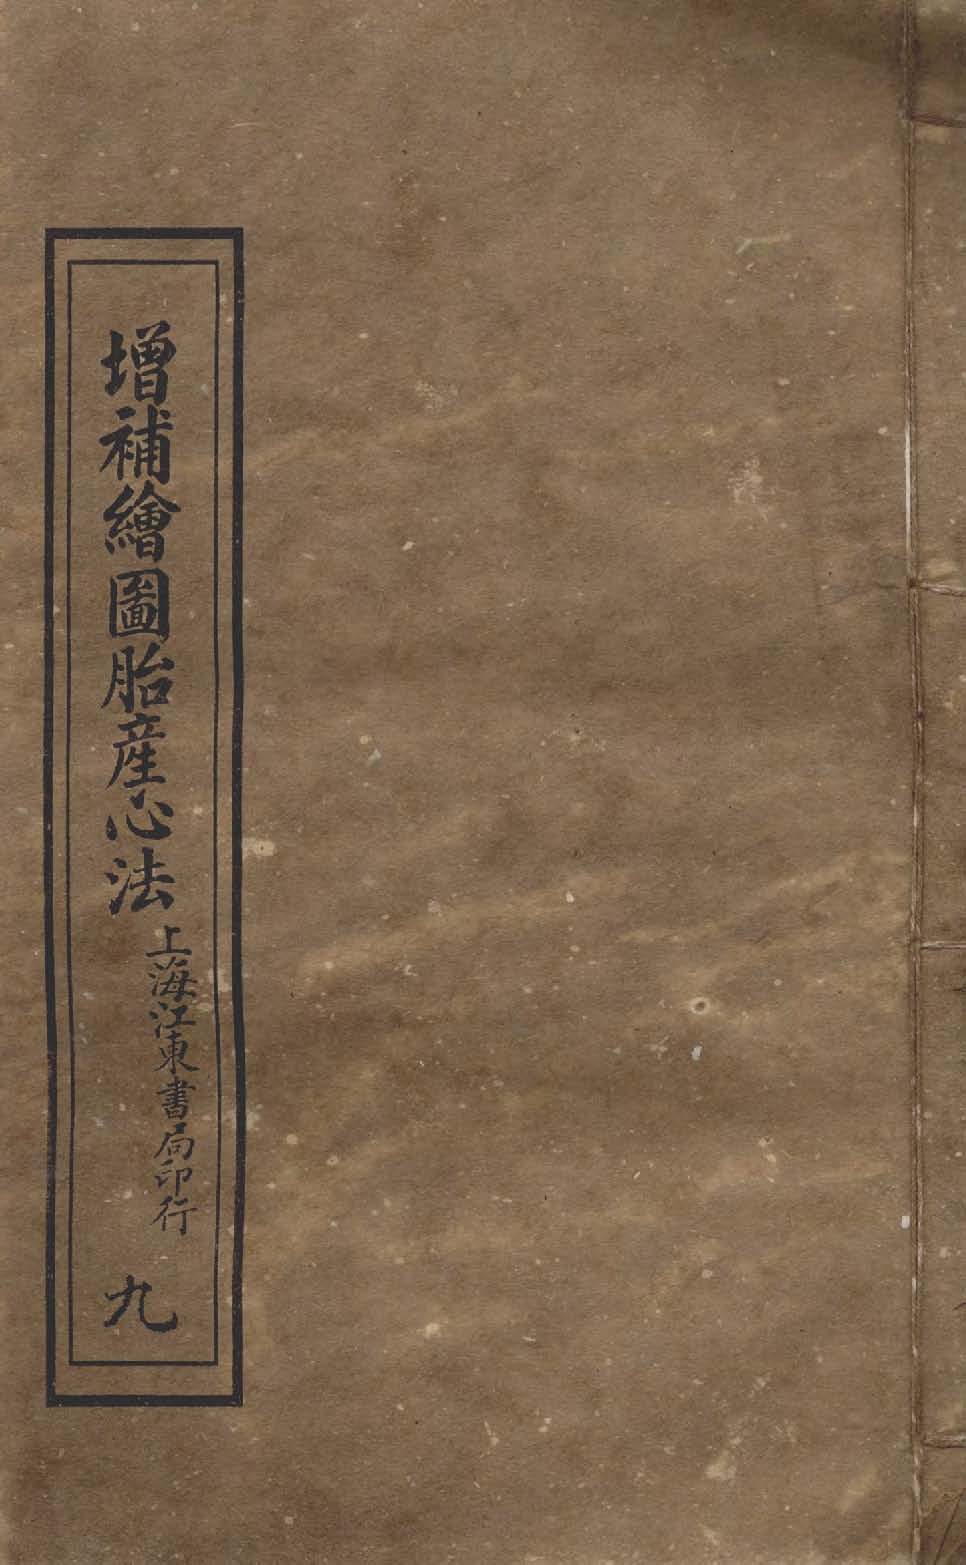 增補繪圖胎産心法
上海江東書局印行
九